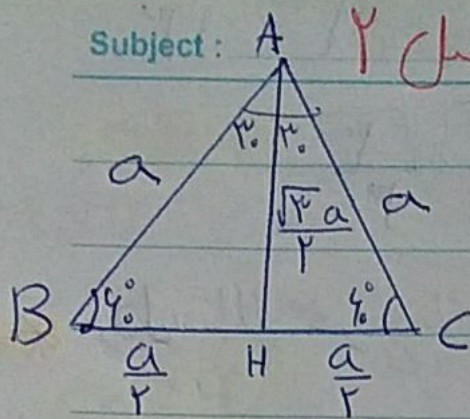 Subject :
۲
A
۳۰ ۳۰
a
√۳ a
۲
a
B
۶۰°
۶۰°
C
a
۲
H
a
۲